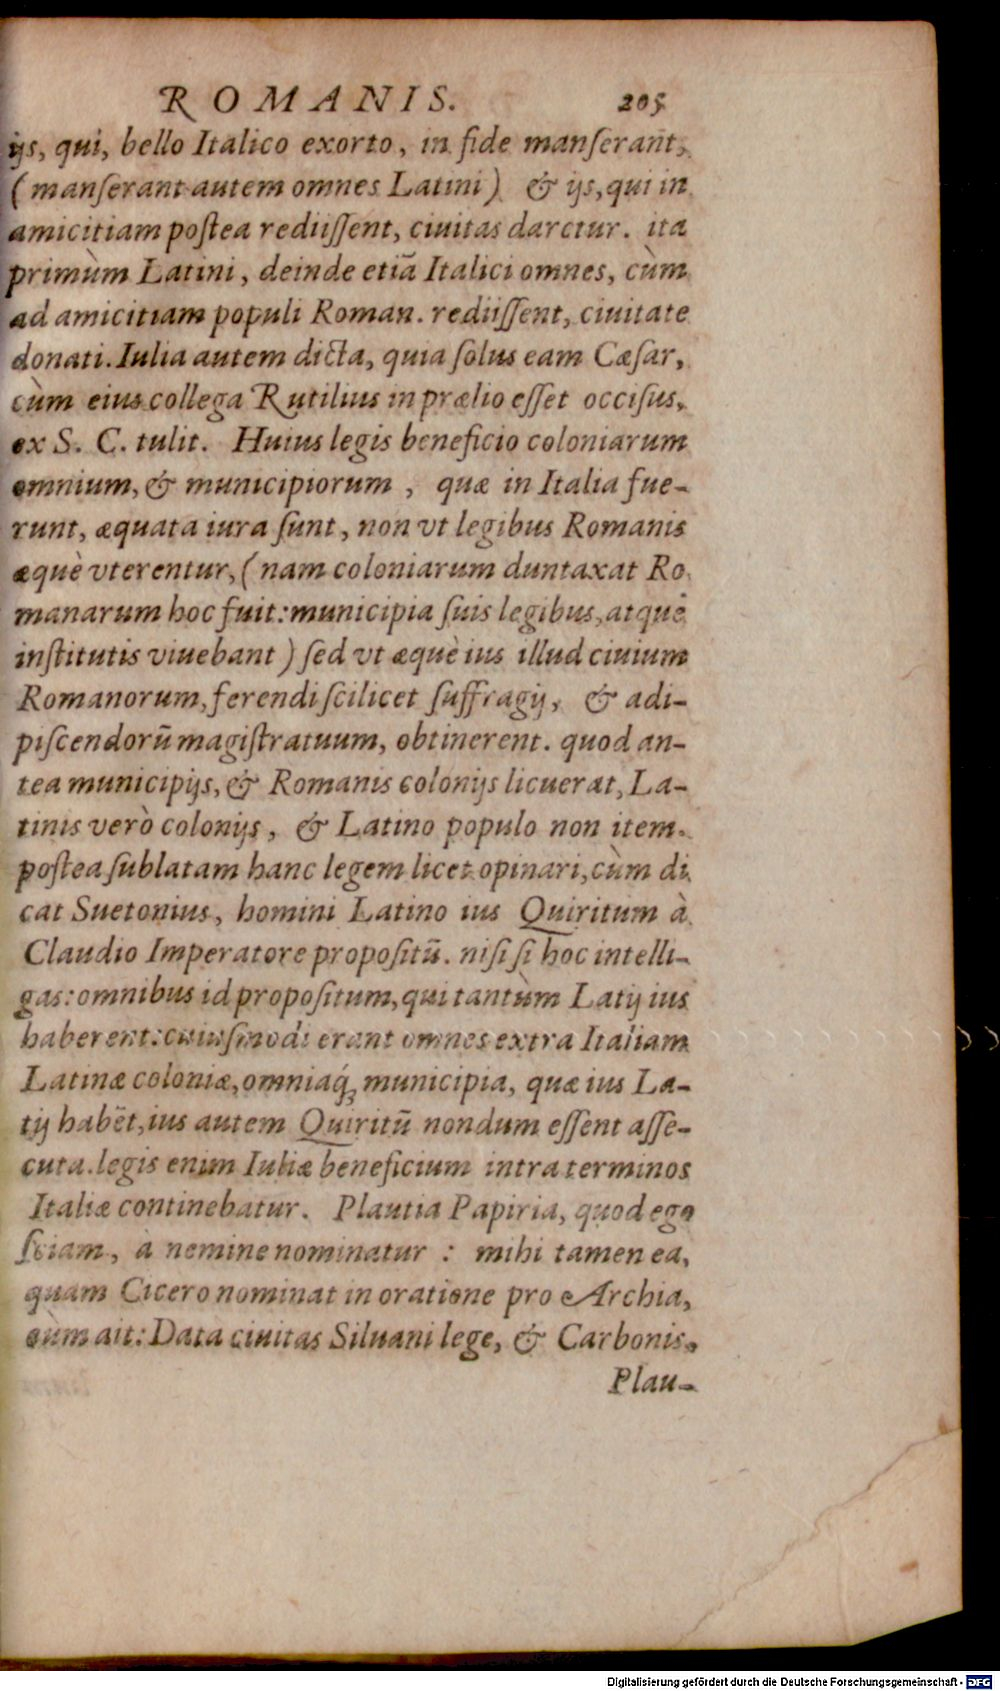 ROMANIS. 205
ijs, qui, bello Italico exorto, in fide manſerant,
(manſerant autem omnes Latini) & ijs, qui in
amicitiam poſtea rediiſſent, ciuitas darctur. ita
primùm Latini, deinde etiā Italici omnes, cùm
ad amicitiam populi Roman. rediiſſent, ciuitate
donati. Iulia autem dicta, quia ſolus eam Cæſar,
cùm eius collega Rutilius in prælio eſſet occiſus,
ex S. C. tulit. Huius legis beneficio coloniarum
omnium, & municipiorum, quæ in Italia fue-
runt, æquata iura ſunt, non vt legibus Romanis
æquè vterentur, (nam coloniarum duntaxat Ro
manarum hoc fuit: municipia ſuis legibus, atque
inſtitutis viuebant) ſed vt æquè ius illud ciuium
Romanorum, ferendi ſcilicet ſuffragij, & adi-
piſcendorū magiſtratuum, obtinerent. quod an-
tea municipijs, & Romanis colonijs licuerat, La-
tinis verò colonijs, & Latino populo non item.
poſtea ſublatam hanc legem licet opinari, cùm di
cat Suetonius, homini Latino ius Quiritum à
Claudio Imperatore propoſitū. niſi ſi hoc intelli-
gas: omnibus id propoſitum, qui tantùm Latij ius
haberent: cuiuſmodi erant omnes extra Italiam
Latinæ coloniæ, omniaq́; municipia, quæ ius La-
tij habēt, ius autem Quiritū nondum eſſent aſſe-
cuta. legis enim Iuliæ beneficium intra terminos
Italiæ continebatur. Plautia Papiria, quod ego
ſciam, à nemine nominatur: mihi tamen ea,
quam Cicero nominat in oratione pro Archia,
cùm ait: Data ciuitas Siluani lege, & Carbonis,
Plau-
Digitalisierung gefördert durch die Deutsche Forschungsgemeinschaft - DFG